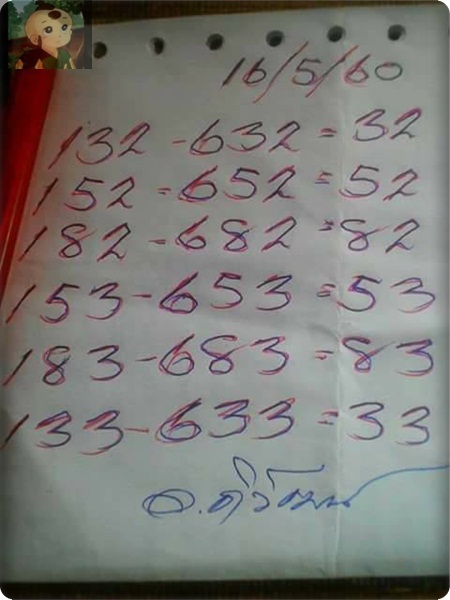 16/5/60
132 - 632 = 32
152 = 652 = 52
182 - 682 = 82
153 - 653 = 53
183 - 683 = 83
133 - 633 = 33